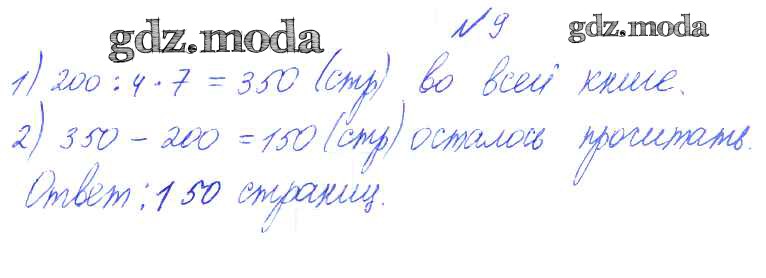 № 9
gdz.moda gdz.moda
1) 200 : 4 · 7 = 350 (стр) во всей книге.
2) 350 - 200 = 150 (стр) осталось прочитать.
Ответ: 150 страниц.